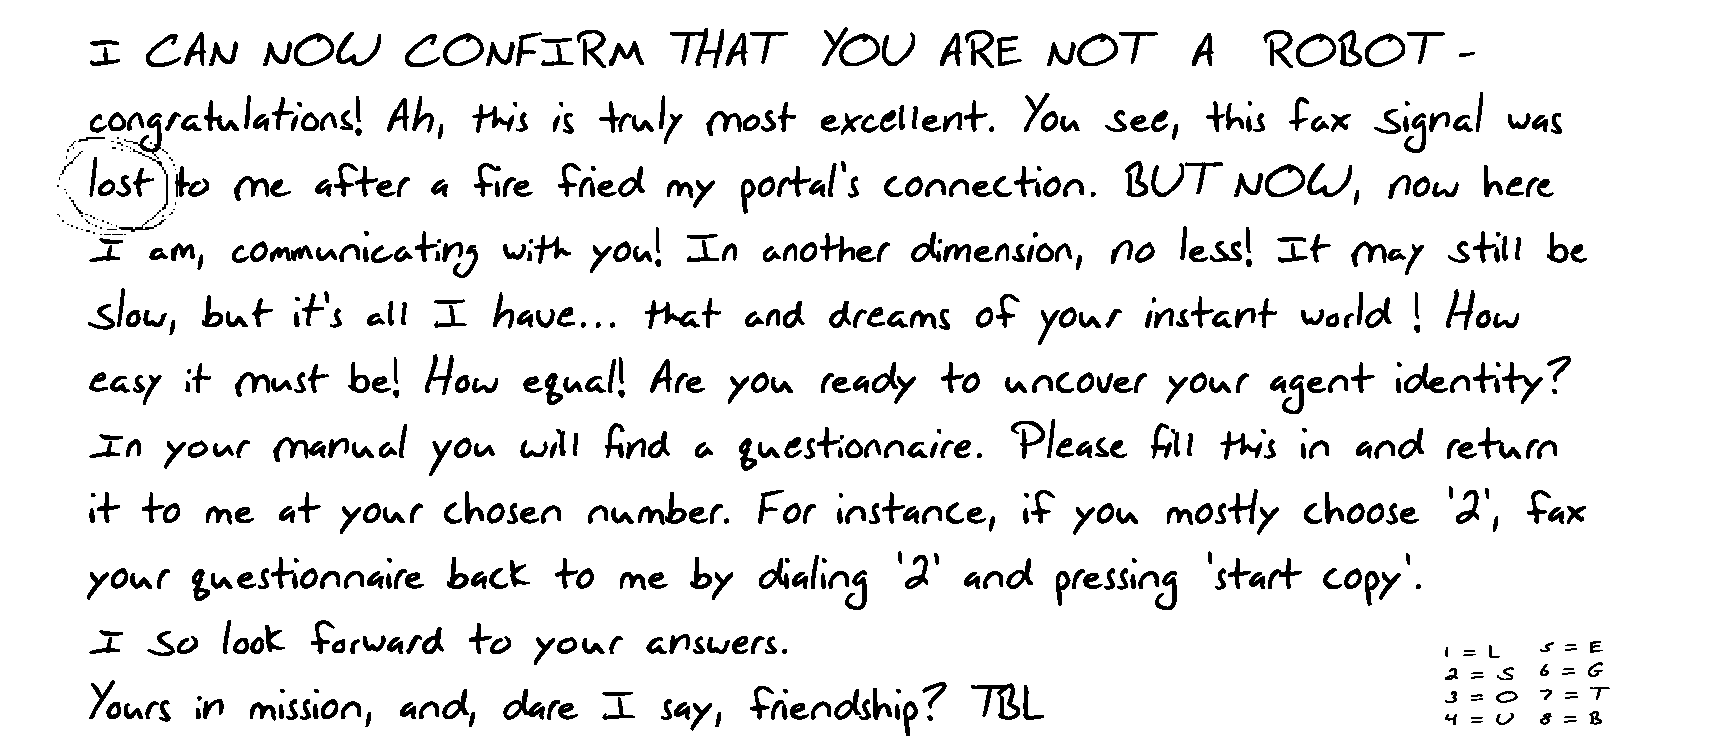 I CAN NOW CONFIRM THAT YOU ARE NOT A ROBOT -
congratulations! Ah, this is truly most excellent. You see, this fax signal was
lost to me after a fire fried my portal's connection. BUT NOW, now here
I am, communicating with you! In another dimension, no less! It may still be
slow, but it's all I have... that and dreams of your instant world! How
easy it must be! How equal! Are you ready to uncover your agent identity?
In your manual you will find a questionnaire. Please fill this in and return
it to me at your chosen number. For instance, if you mostly choose '2', fax
your questionnaire back to me by dialing '2' and pressing 'start copy'.
I so look forward to your answers.
Yours in mission, and, dare I say, friendship? TBL
1 = L 5 = E
2 = S 6 = G
3 = O 7 = T
4 = U 8 = B